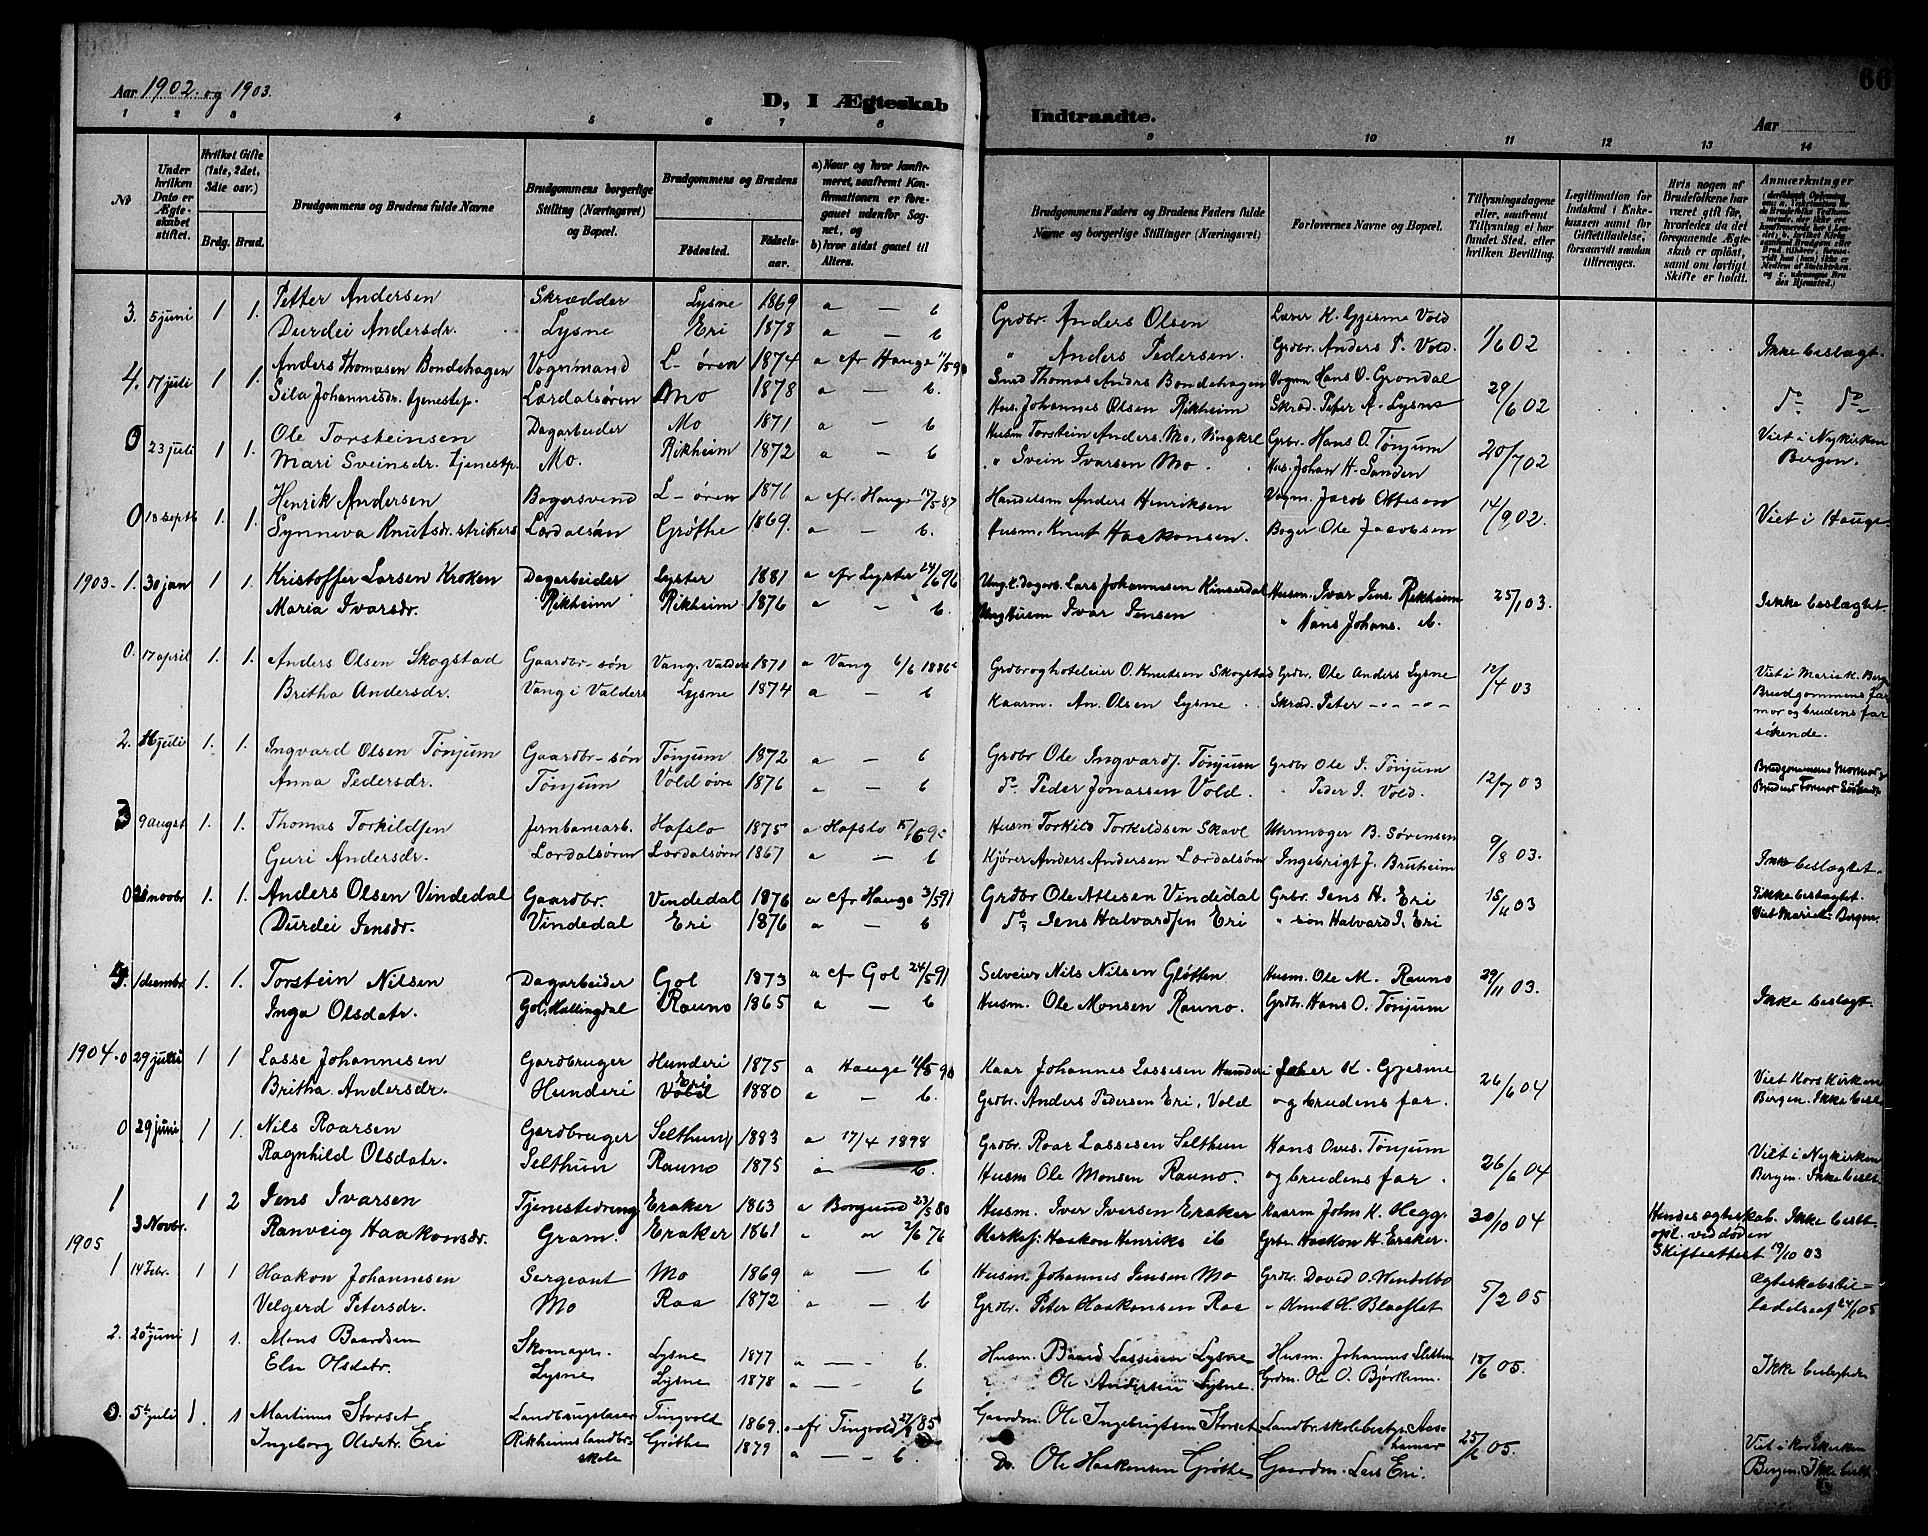 Aar 1902. og 1903.
D, I Ægteskab
Indtraadte.
Aar
66
1 2 3 4 5 6 7 8 9 10 11 12 13 14
No
Under hvilken Dato er Ægteskabet stiftet.
Hvilket Gifte (1ste, 2det, 3die osv.)
Brdg. Brud.
Brudgommens og Brudens fulde Navne
Brudgommens borgerlige Stilling (Næringsvei) og Bopæl.
Brudgommens og Brudens
Fødested.
Fødselsaar.
a) Naar og hvor konfirmeret, saafremt Konfirmationen er foregaaet udenfor Sognet, og
b) hvor sidst gaaet til Alters.
Brudgommens Faders og Brudens Faders fulde Navne og borgerlige Stillinger (Næringsvei)
Forlovernes Navne og Bopæl.
Tillysningsdagene eller, saafremt Tillysning ei har fundet Sted, efter hvilken Bevilling.
Legitimation for Indskud i Enkekassen samt for Giftetilladelse, forsaavidt saadan tiltrænges.
Hvis nogen af Brudefolkene har været gift før, hvorledes da det foregaaende Ægteskab er opløst, samt om lovligt Skifte er holdt.
Anmærkninger
3. 5 juni 1 1. Petter Andersen Skrædder Lysne 1869 a — b Grdbr. Anders Olsen Lærer K. Gjesme Vold 1/6 02
Durdei Andersdr. Lysne Eri 1878 a — b " Anders Pedersen. Grdbr. Anders P. Vold. Ikke beslægt.
4. 17 juli 1 1. Anders Thomasen Bondehagen Vognmand L- øren 1874 a cfr Hauge 11/5 90 Smed Thomas Anders Bondehagen Vognm Hans O. Grøndal 29/6 02
Sila Johannesdr. tjenestep. Lærdalsøren Mo 1878 a — b. Hus. Johannes Olsen Rikheim Skræd. Peter A. Lysne do do
0 23 juli 1 1. Ole Torsteinsen Dagarbeider Mo 1871 a — b Husm Torstein Anders. Mo, Ungkrl Grbr. Hans O. Tønjum 20/7 02 Viet i Nykirken
Mari Sveinsdr. tjenestp. Mo. Rikheim 1872 a — b " Svein Ivarsen Mo Hus. Johan H. Sanden Bergen.
0 18 septb 1. 1. Henrik Andersen Bagersvend L- øren 1871 a cfr. Hauge 15/5 87 Handelsm Anders Henriksen Vogm. Jacob Ottesen 14/9 02.
Synneva Knutsdr. strikers Lærdalsøn Grøthe 1869. a — b. Husm. Knut Haakonsen. Bager Ole Jacobsen Viet i Hauge
1903- 1. 30 jan 1 1. Kristoffer Larsen Kroken Dagarbeider Lyster 1881 a cfr Lyster 14/6 96 Ung.k. Dagarb. Lars Johannesen Kinserdal Husm. Ivar Jens. Rikheim 25/1 03.
Maria Ivarsdr. Rikheim Rikheim 1876 a — b. Ung Husm Ivar Jensen " Hans Johans. ib. Ikke beslægtet
0. 17 april 1. 1. Anders Olsen Skogstad Gaardbr- søn Vang. Valders 1871 a Vang 6/6 1886 Grdbr og hoteleier O. Knutsen Skogstad Grdbr. Ole Anders Lysne 12/4 03 Viet i Mariek. Berg
Britha Andersdr. Vang i Valders Lysne 1874 a — b Kaarm. An. Olsen Lysne Skræd. Peter - - - - Brudgommens far
mor og brudens far
søkende.
2. juli 1. 1. Ingvard Olsen Tønjum Gaardbr- søn Tønjum 1872 a b Grdbr Ole Ingvardsj. Tønjum Grdbr Ole J. Tønjum 12/7 03
Anna Pedersdr. Tønjum Vold øvre 1876 a — b do Peder Jonassen Vold. " Peder J. Vold.
3 9 augst 1. 1. Thomas Torkildsen Jernbanearb. Hafslo 1875 a Hafslo Husm Torkild Torkildsen Skavl Uhrmager B. Sørensen 9/8 03.
Guri Andersdr. Lærdalsøren Lærdalsøren 1867 a — b Kjører Anders Andersen Lærdalsøren Ingebrigt J. Bruheim Ikke beslægtet.
0 novbr 1. 1. Anders Olsen Vindedal Gaardbr. Vindedal 1876 a cfr Hauge 3/5 91 Grdbr Ole Attesen Vindedal Grbr. Jens H. Eri 15/11 03 Ikke beslægtet.
Durdei Jensdr. Vindedal Eri 1876 a — b do Jens Halvardsen Eri " søn Halvard J. Eri Viet Mariek. Bergen.
4. 1 decembr 1. 1. Torstein Nilsen Dagarbeider Gol 1873 a cfr Gol 24/5 91 Selveier Nils Nilsen Gløtten Husm. Ole M. Rauno 29/11 03.
Inga Olsdatr. Gol, Hallingdal Rauno 1865 a — b Husm. Ole Monsen Rauno. Grdbr. Hans O. Tønjum Ikke beslægt.
1904- 0 29 juni 1 1 Lasse Johannesen Gardbruger Hunderi 1875 a Hauge 11/5 90 Kaar Johannes Lassesen Hunderi K. Gjesme 26/6 04 Viet Kors Kirken
Britha Andersdr. Hunderi Eri Vold 1880 a — b. Grdbr. Anders Pedersen Eri, Vold og brudens far. Bergen. Ikke besl.
0 29 juni 1 1. Nils Roarsen Gardbruger Selthun 1883 a 17/4 1898 Grdbr. Roar Lassesen Selthun Hans Ovs. Tønjum 26/6 04 Viet i Nykirken
Ragnhild Olsdatr. Selthun Rauno 1875 a — b. Husm Ole Monsen Rauno. og brudens far Bergen. Ikke besl.
1 3 Novbr. 1 2 Jens Ivarsen Tjenestedreng Eraker 1863 a Borgund 23/5 80 Husm. Iver Iversen Eraker Kaarm John K. Hegg. 30/10 04 Hendes ægteskab Ikke besl.
Ranveig Haakonsdr. Gram. Eraker 1861 a " 2/6 76 Haakon Henriks ib Grbr. Haakon H. Eraker. opl. ved døden
Skifteattest 19/10 03
1905
1 14 Febr. 1 1 Haakon Johannesen Sergeant Mo 1869 a — b Husm. Johannes Jensen Mo Grdbr. David O. Wendelbo 5/2 05 Ægteskabstil-
Velgerd Petersdr. Mo Raa 1872 a — b Grdbr. Peter Haakonsen Raa " Knut H. Blaaflat ladelse af 24/1 05
2. 20de juni 1 1. Mons Baardsen Skomager. Lysne 1877 a — b. Husm. Baard Lassesen Lysne Husm. Johannes Sletten 18/6 05.
Else Olsdatr. Lysne Lysne 1878 a — b Ole Andersen Lysne. Grdm. Ole O. Bjørkum. Ikke beslægtede
0. 5te juli 1. 1 Martinus Storset Landbrugslærer Tingvold 1869. a cfr Tingvold 27/9 85 Gaardm. Ole Ingebrigtsen Storset Landbr.skolebestyr. Aas- 25/6 05. Viet i Korskirken
Ingeborg Olsdatr. Eri Rikheims landbr. skole Grøthe 1879 a — b. Do. Ole Haakonsen Grøthe Gaardm. Lars Eri. Bergen. Ikke besl.